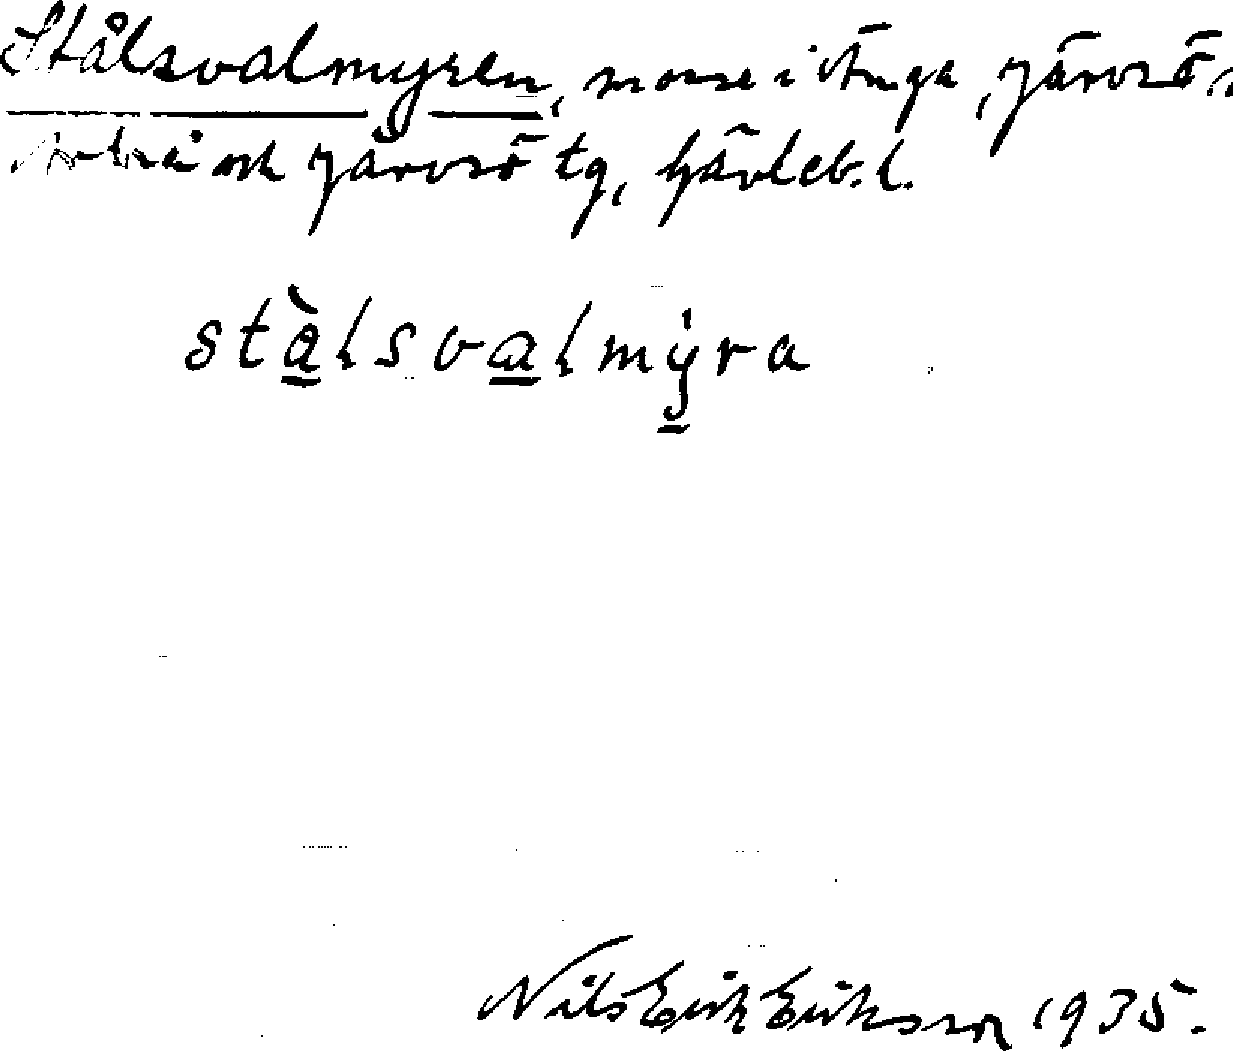 Stålsvalmyren, mosse i Änga, Järvsö s
Arbrå och Järvsö tg, Gävleb. l.
stàlsvalmyra
Nils Erik Eriksson 1935.